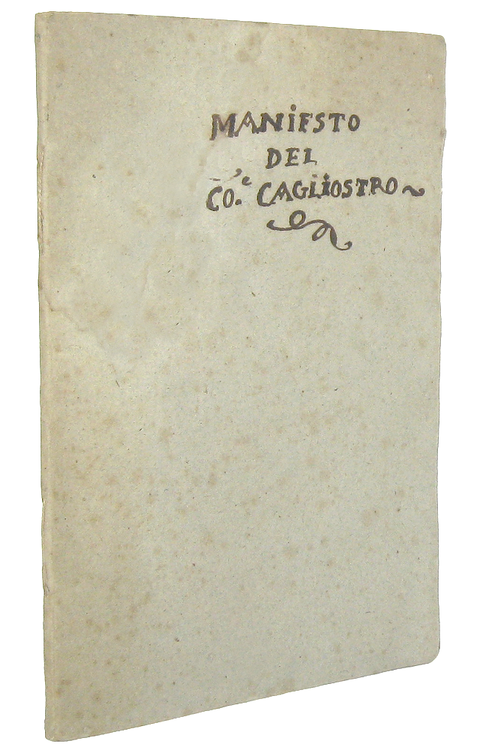 MANIFESTO
DEL
CO.e CAGLIOSTRO~